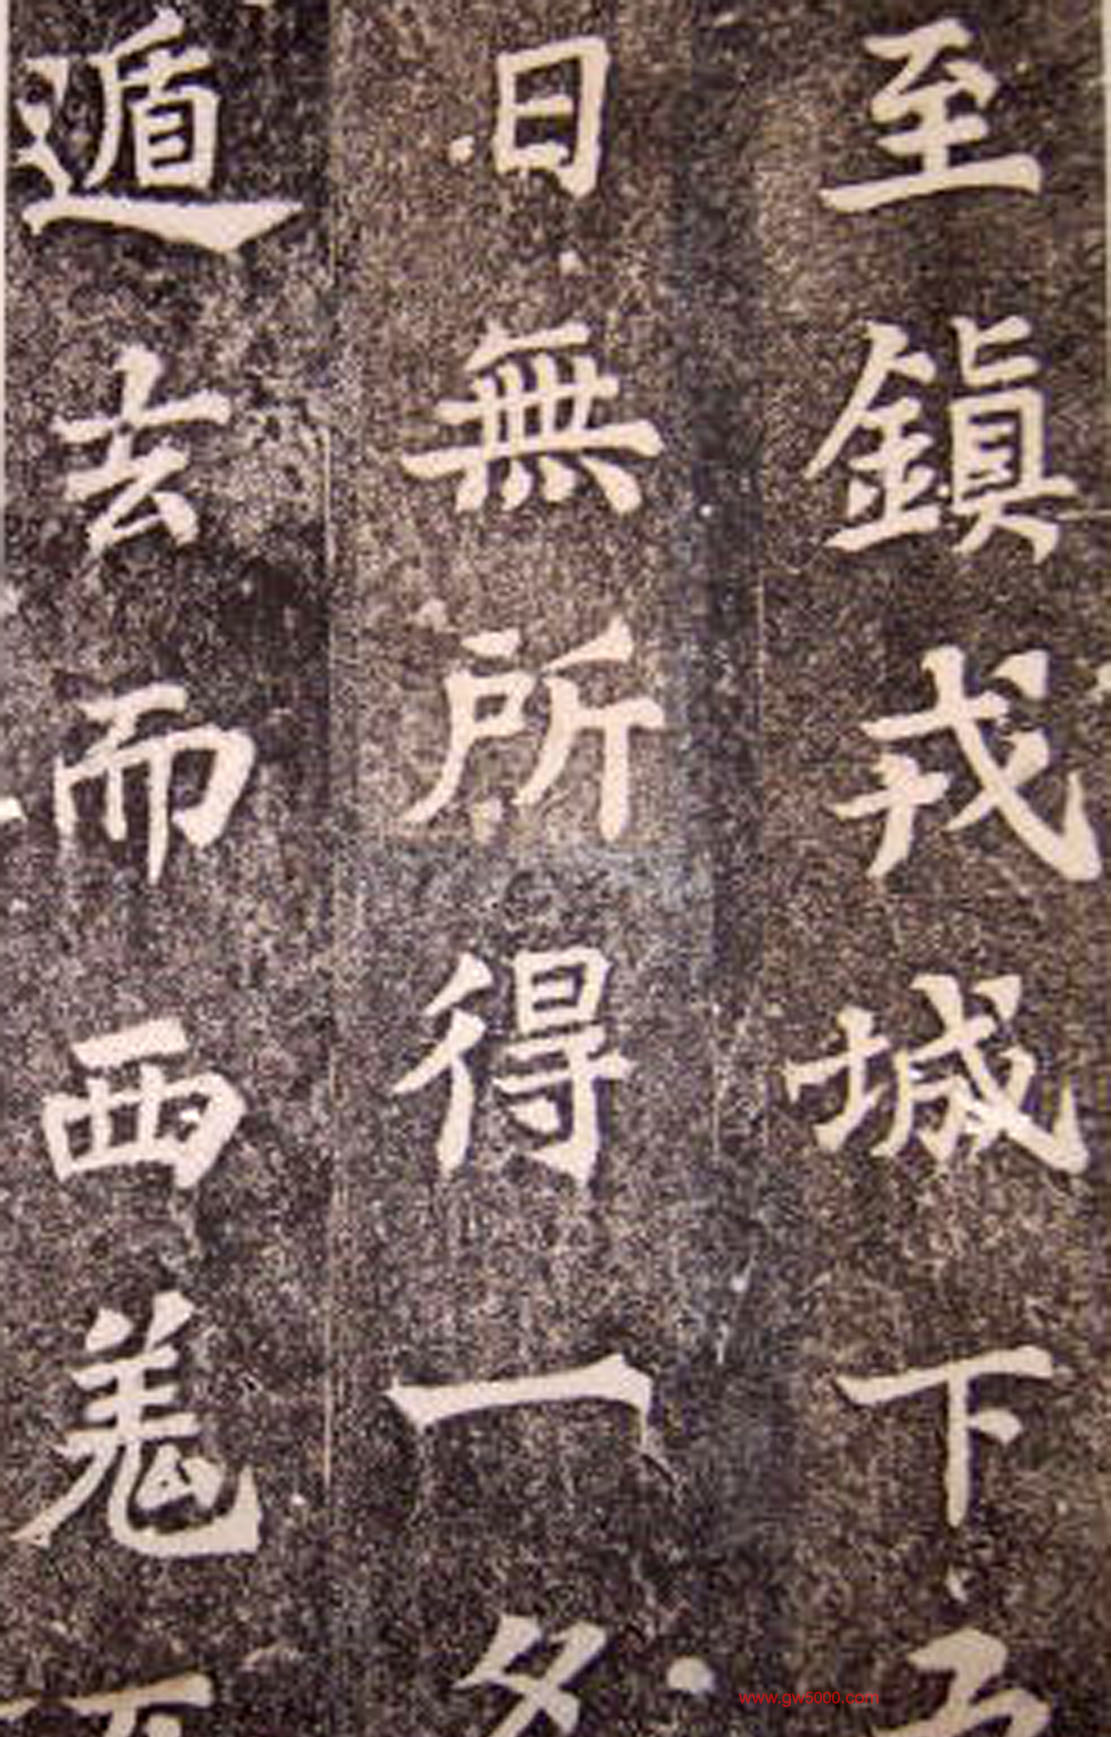 至鎮戎城下五
日無所得一夕
遁去而西羌
www.gw5000.com